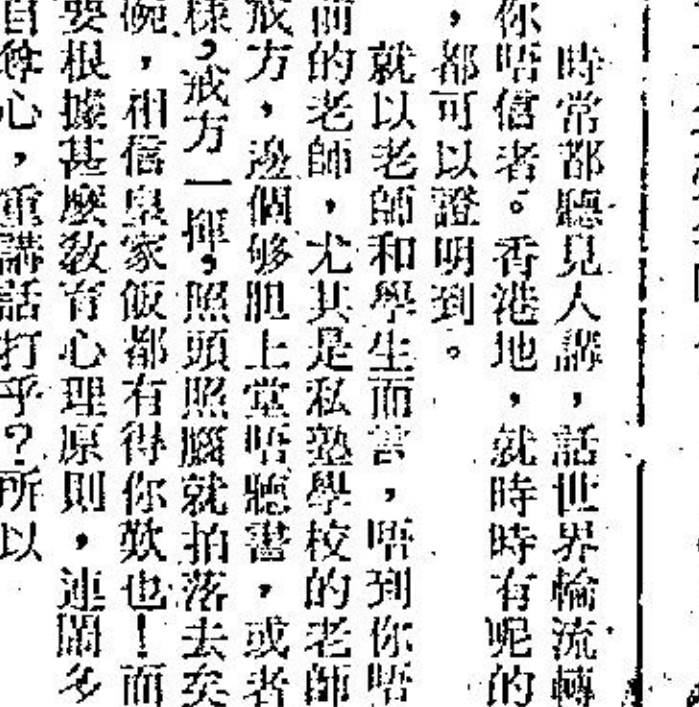 時常都聽見人講，話世界輪流轉
你唔信者。香港地，就時時有呢的
，都可以證明到。
就以老師和學生而言，唔到你唔
前的老師，尤其是私塾學校的老師
戒方，邊個够胆上堂唔聽書，或者
樣，戒方一揮，照頭照腦就拍落去矣
碗，相信皇家飯都有得你歎也！而
要根據甚麼敎育心理原則，連鬧多
自尊心，重講話打乎？所以